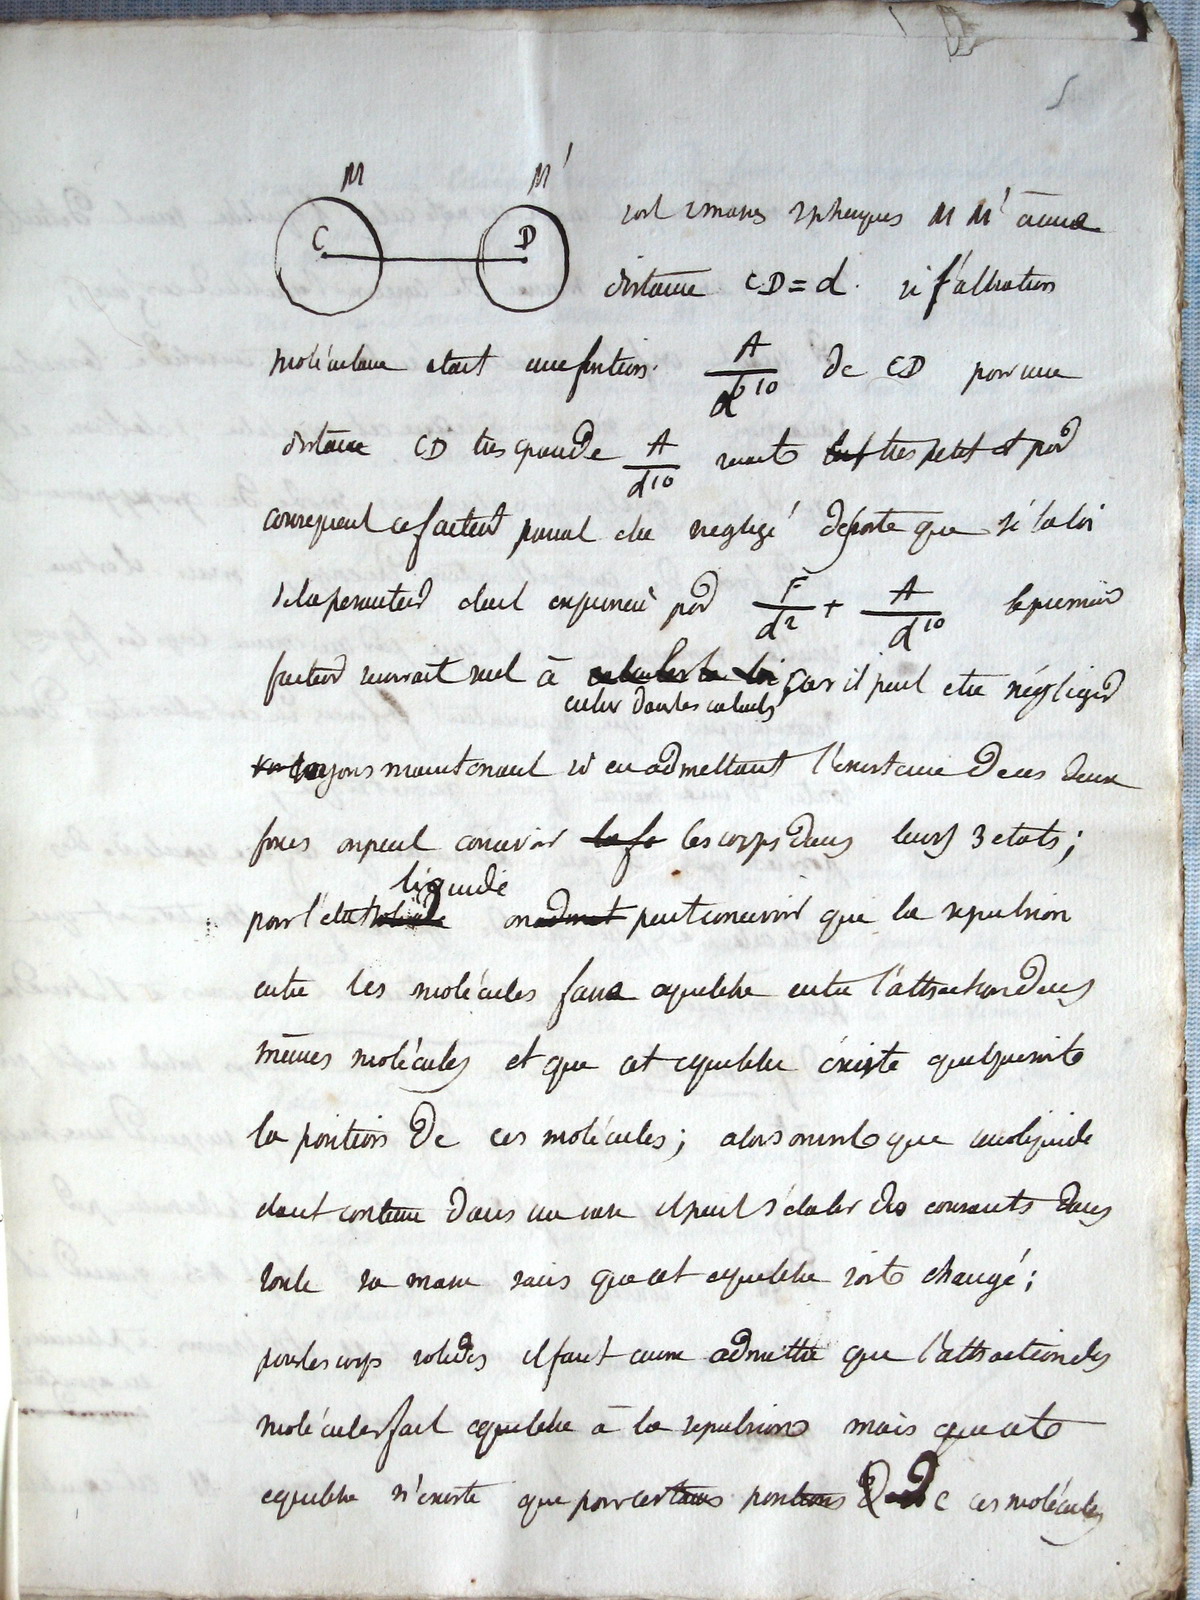 5
M M'
C D
soit 2 masses spheriques M M' à une
distance CD = d. si l'attraction
moléculaire etait une fonction A/d^10 de CD pour une
distance CD tres grande A/d^10 serait tres petit et par
consequent ce facteur pourrait etre negligé de sorte que si la loi
de la pesanteur etait exprimée par F/d^2 + A/d^10 le premier
facteur seul à calculer la loi car il peut etre négliger
entrer dans les calculs
voyons maintenant si en admettant l'existence de ces deux
forces on peut concevoir la fo les corps dans leurs 3 etats;
liquide
pour l'etat solide on admet peut concevoir que la repulsion
entre les molécules fasse equilibre entre l'attraction des
mêmes molécules et que cet equilibre existe quelque soit
la position de ces molécules; alors on voit que le liquide
etant contenu dans un vase il peut s'etablir des courants dans
toute sa masse sans que cet equilibre soit changé;
pour les corps solides il faut aussi admettre que l'attraction des
molécules fait equilibre à la repulsion mais que cet
equilibre n'existe que pour certaines positions de ces molécules